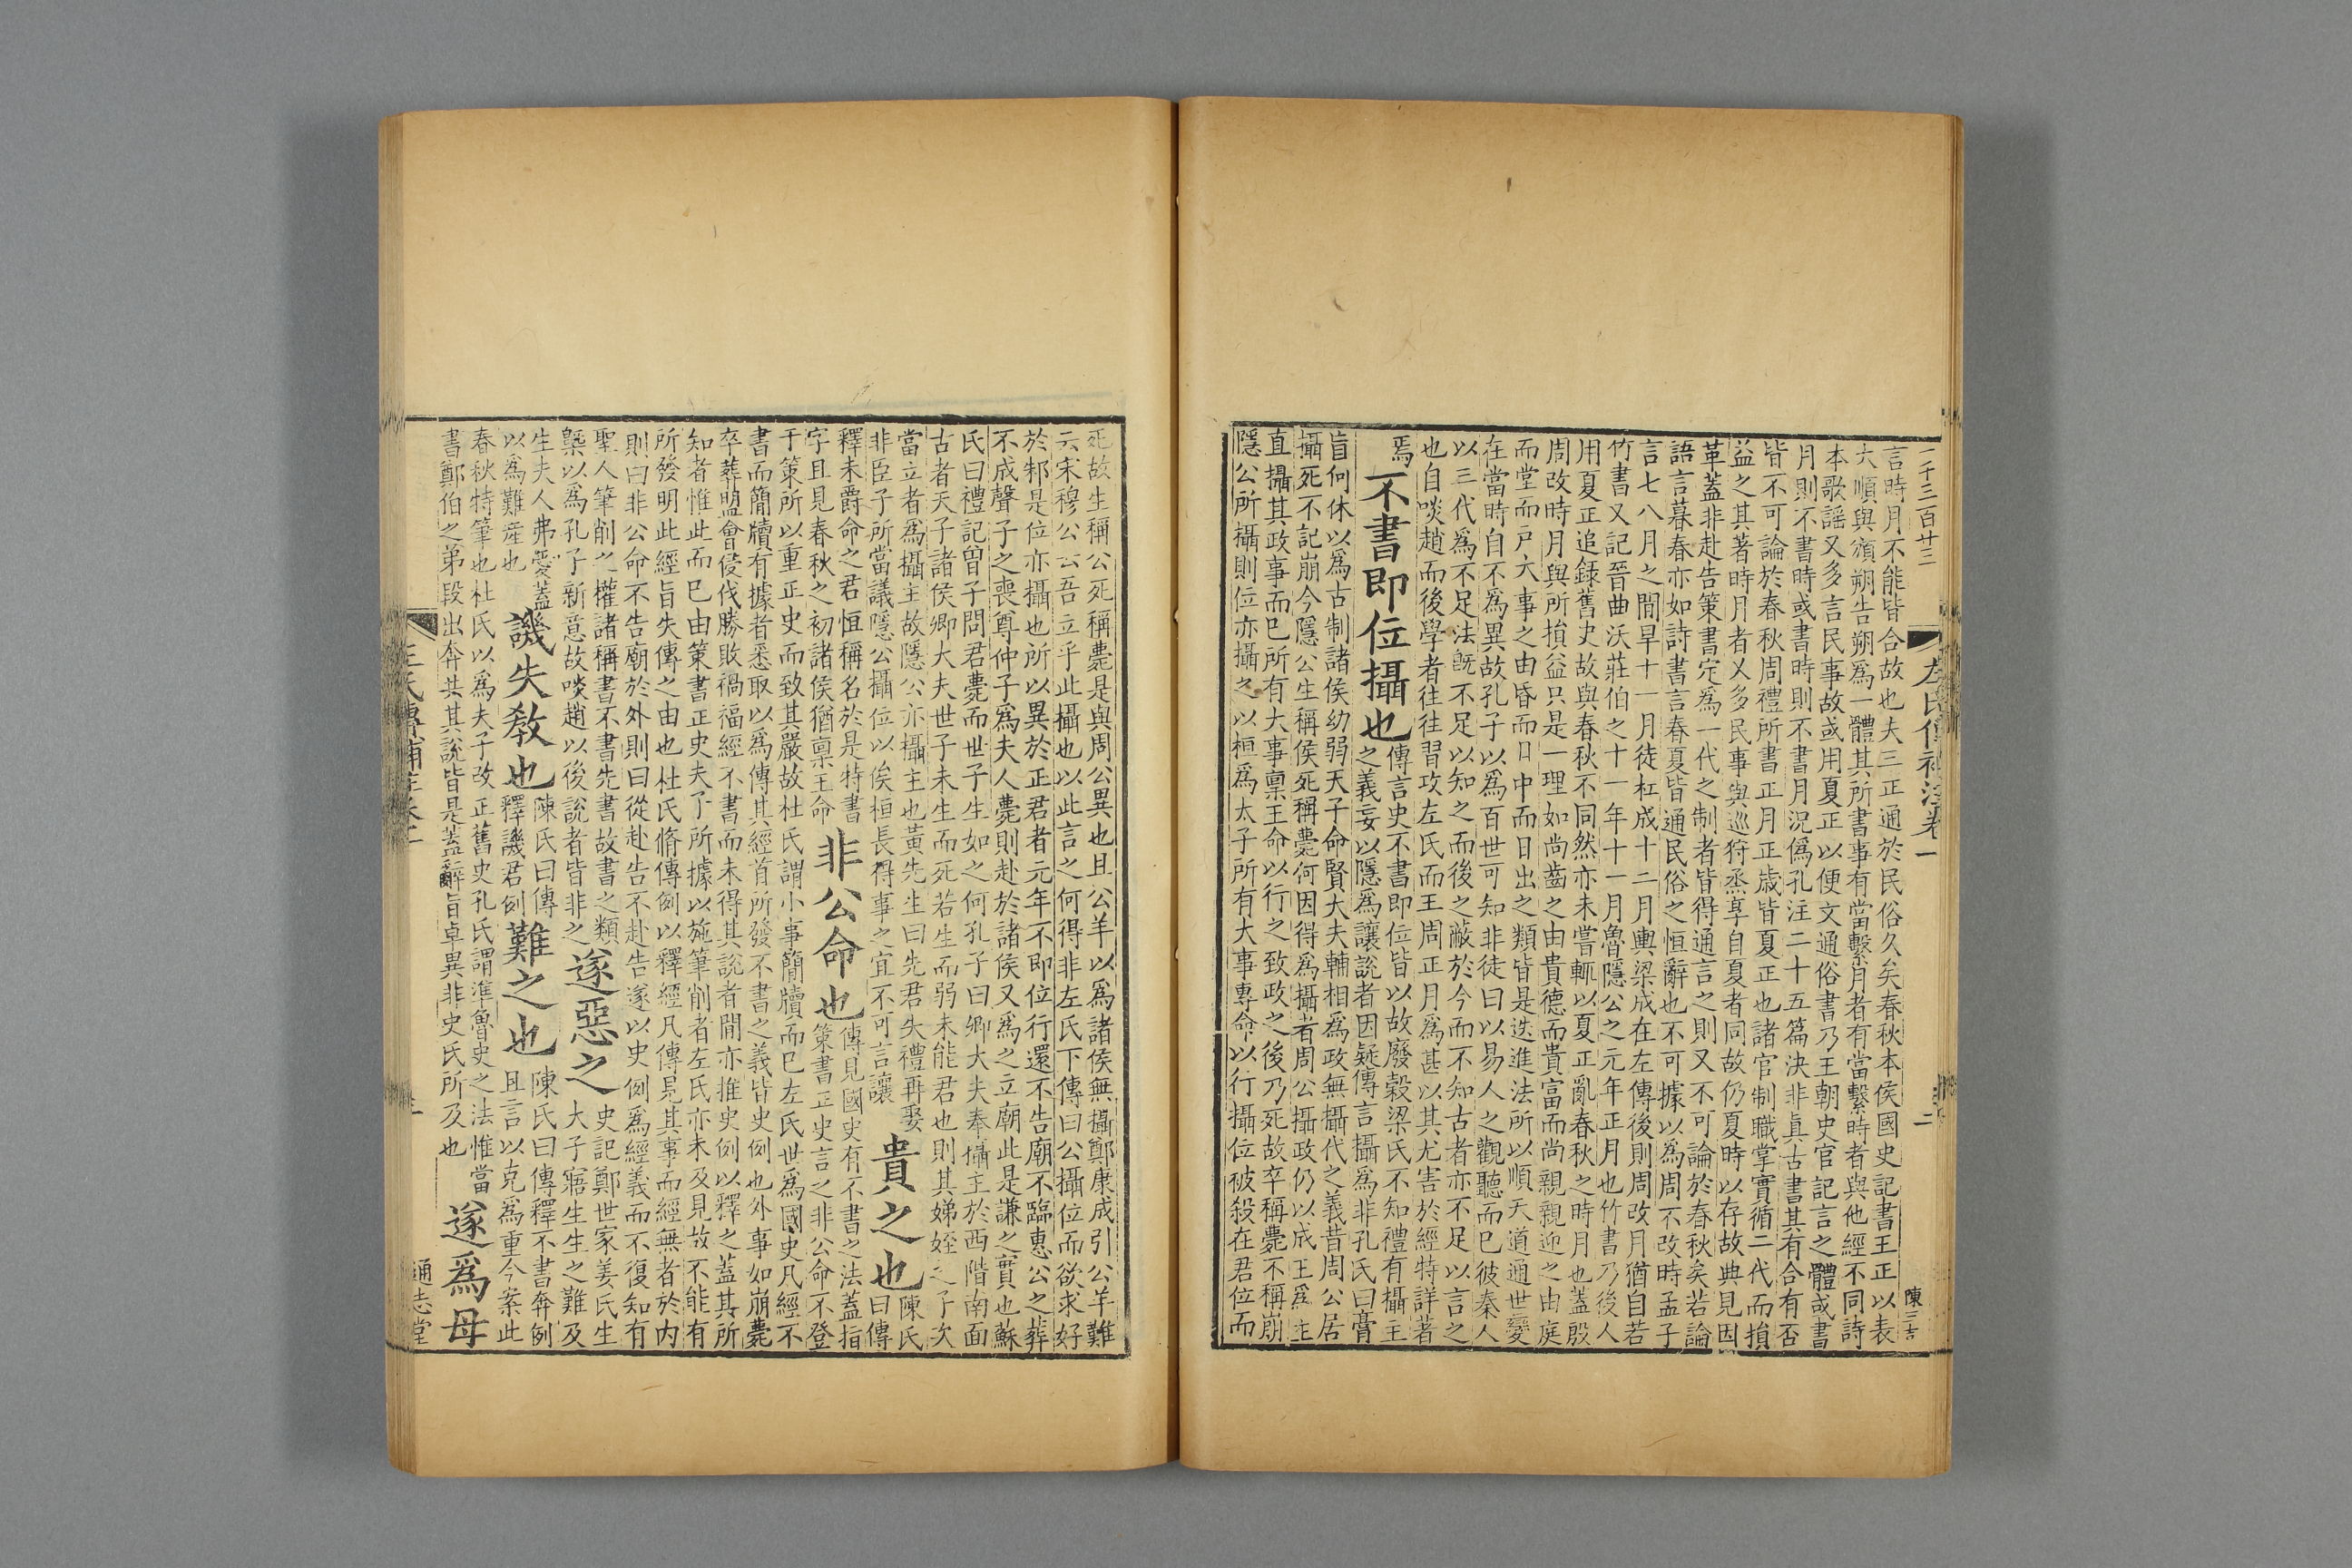 一千三百廿二
左氏傳補注卷一
二
陳三吉
言時月不能皆合故也夫三正通於民俗久矣春秋本侯國史記書王正以表
大順與頒朔告朔爲一體其所書事有當繫月者有當繫時者與他經不同詩
本歌謠又多言民事故或用夏正以便文通俗書乃王朝史官記言之體或書
月則不書時或書時則不書月況僞孔注二十五篇決非眞古書其有合有否
皆不可論於春秋周禮所書正月正歲皆夏正也諸官制職掌實循二代而損
益之其著時月者又多民事與巡狩烝享自夏者同故仍夏時以存故典見因
革蓋非赴告策書定爲一代之制者皆得通言之則又不可論於春秋矣若論
語言暮春亦如詩書言春夏皆通民俗之恒辭也不可據以爲周不改時孟子
言七八月之閒旱十一月徒杠成十二月輿梁成在左傳後則周改月猶自若
竹書又記晉曲沃莊伯之十一年十一月魯隱公之元年正月也竹書乃後人
用夏正追錄舊史故與春秋不同然亦未嘗輒以夏正亂春秋之時月也蓋殷
周改時月與所損益只是一理如尚齒之由貴德而貴富而尚親親迎之由庭
而堂而戶大事之由昏而日中而日出之類皆是迭進法所以順天道通世變
在當時自不爲異故孔子以爲百世可知非徒曰以易人之觀聽而已彼秦人
以三代爲不足法旣不足以知之而後之蔽於今而不知古者亦不足以言之
也自啖趙而後學者往往習攻左氏而王周正月爲甚以其尤害於經特詳著
焉 不書即位攝也 傳言史不書即位皆以故廢穀梁氏不知禮有攝主
之義妄以隱爲讓說者因疑傳言攝爲非孔氏曰膏
肓何休以爲古制諸侯幼弱天子命賢大夫輔相爲政無攝代之義昔周公居
攝死不記崩今隱公生稱侯死稱薨何因得爲攝者周公攝政仍以成王爲主
直攝其政事而已所有大事稟王命以行之致政之後乃死故卒稱薨不稱崩
隱公所攝則位亦攝之以桓爲太子所有大事專命以行攝位被殺在君位而
死故生稱公死稱薨是與周公異也且公羊以爲諸侯無攝鄭康成引公羊難
云宋穆公云吾立乎此攝也以此言之何得非左氏下傳曰公攝位而欲求好
於邾是位亦攝也所以異於正君者元年不即位行還不告廟不臨惠公之葬
不成聲子之喪尊仲子爲夫人薨則赴於諸侯又爲之立廟此是謙之實也蘇
氏曰禮記曾子問君薨而世子生如之何孔子曰卿大夫奉攝主於西階南面
古者天子諸侯卿大夫世子未生而死若生而弱未能君也則其娣姪之子次
當立者爲攝主故隱公亦攝主也黃先生曰先君失禮再娶
非臣子所當議隱公攝位以俟桓長得事之宜不可言讓 貴之也 陳氏
曰傳
釋未爵命之君恒稱名於是特書
字且見春秋之初諸侯猶稟王命 非公命也 傳見國史有不書之法蓋指
策書正史言之非公命不登
于策所以重正史而致其嚴故杜氏謂小事簡牘而已左氏世爲國史凡經不
書而簡牘有據者悉取以爲傳其經首所發不書之義皆史例也外事如崩薨
卒葬盟會侵伐勝敗禍福經不書而未得其說者閒亦推史例以釋之蓋其所
知者惟此而已由策書正史夫子所據以施筆削者左氏亦未及見故不能有
所發明此經旨失傳之由也杜氏脩傳例以釋經凡傳見其事而經無者於內
則曰非公命不告廟於外則曰從赴告不赴告遂以史例爲經義而不復知有
聖人筆削之權諸稱書不書先書故書之類 遂惡之 史記鄭世家姜氏生
大子寤生生之難及
槩以爲孔子新意故啖趙以後說者皆非之
生夫人弗愛蓋
以爲難產也 譏失教也 陳氏曰傳
釋譏君例 難之也 陳氏曰傳釋不書奔例
且言以克爲重今案此
春秋特筆也杜氏以爲夫子改正舊史孔氏謂準魯史之法惟當
書鄭伯之弟段出奔共其說皆是蓋辭旨卓異非史氏所及也 遂爲母
通志堂